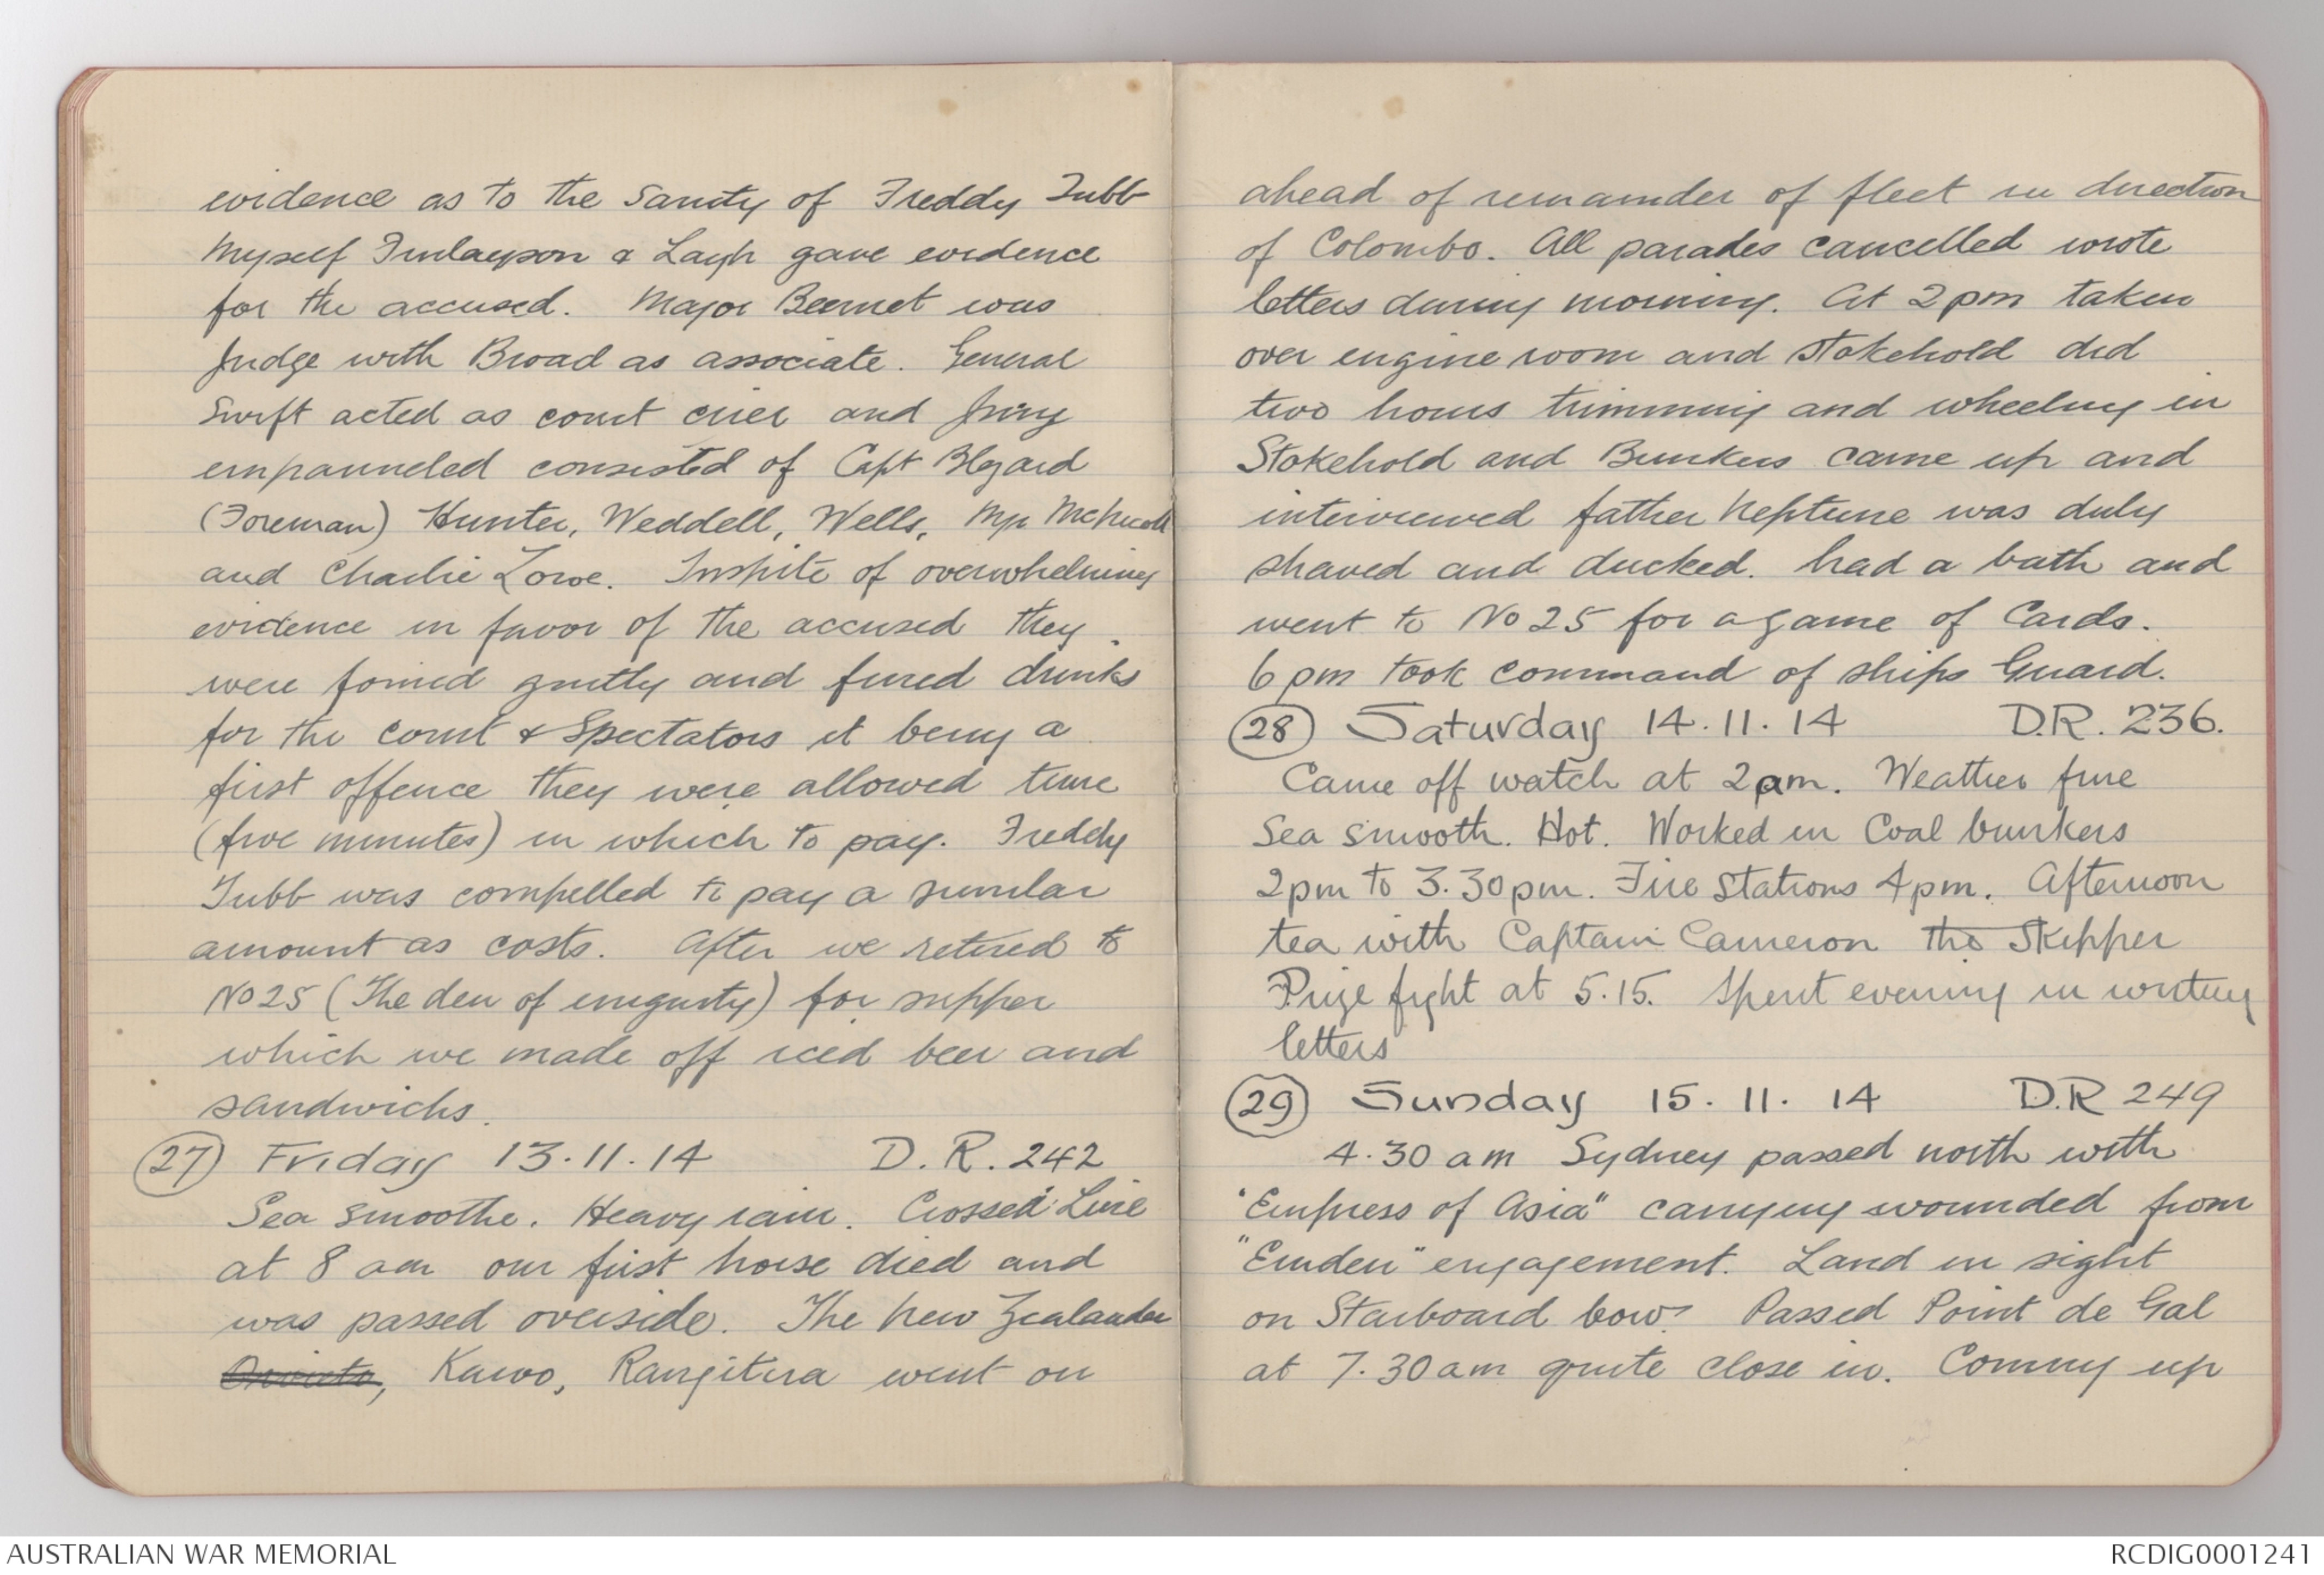 evidence as to the Sanity of Freddy Tubb
Myself Finlayson & Layh gave evidence
for the accused. Major Bennet was
Judge with Broad as associate. General
Swift acted as court crier and Jury
empanneled consisted of Capt Blezard
(Foreman) Hunter, Weddell, Wells, Mr McNicoll
and Charlie Lowe. Inspite of overwhelming
evidence in favor of the accused they
were found guilty and fined drinks
for the court & Spectators it being a
first offence they were allowed time
(five minutes) in which to pay. Freddy
Tubb was compelled to pay a similar
amount as costs. After we retired to
No 25 (The den of iniquity) for supper
which we made off iced beer and
sandwichs.
(27) Friday 13.11.14 D.R. 242
Sea smoothe. Heavy rain. Crossed Line
at 8 am our first horse died and
was passed overside. The New Zealander
Orvieto, Kawo, Rangitira went on
ahead of remainder of fleet in direction
of Colombo. All parades cancelled wrote
letters during morning. At 2 pm taken
over engine room and Stokehold did
two hours trimming and wheeling in
Stokehold and Bunkers came up and
interviewed father Neptune was duly
shaved and ducked. had a bath and
went to No 25 for a game of Cards.
6 pm took command of ships Guard.
(28) Saturday 14.11.14 D.R. 236.
Came off watch at 2am. Weather fine
Sea smooth. Hot. Worked in Coal bunkers
2pm to 3.30pm. Fire Stations 4pm. Afternoon
tea with Captain Cameron the Skipper
Prize fight at 5.15. Spent evening in writing
letters
(29) Sunday 15.11.14 D.R 249
4.30 am Sydney passed north with
"Empress of Asia" carrying wounded from
"Emden" engagement. Land in sight
on Starboard bow. Passed Point de Gal
at 7.30am quite close in. Coming up
AUSTRALIAN WAR MEMORIAL
RCDIG0001241